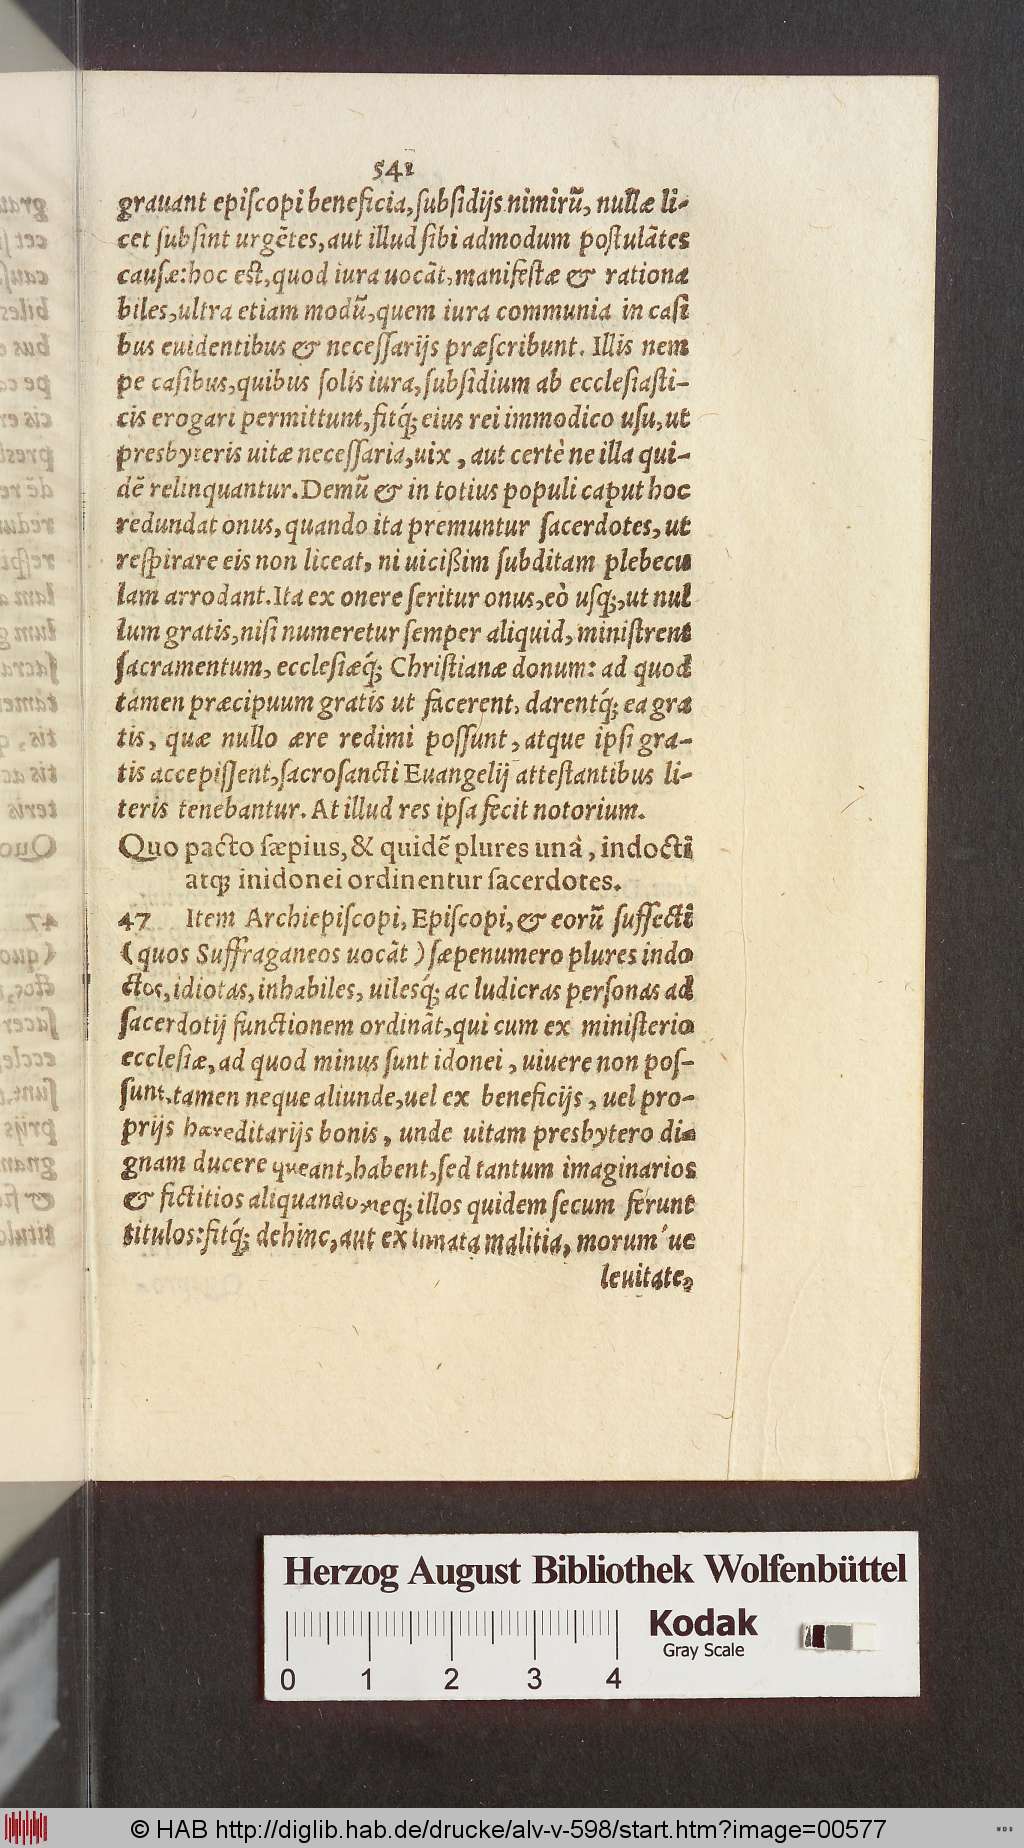 541
grauant epiſcopi beneficia, ſubſidijs nimirũ, nullæ li-
cet ſubſint urgẽtes, aut illud ſibi admodum poſtulãtes
cauſæ: hoc eſt, quod iura uocãt, manifeſtæ & rationa
biles, ultra etiam modũ, quem iura communia in caſi
bus euidentibus & neceſſarijs præſcribunt. Illis nem
pe caſibus, quibus ſolis iura, ſubſidium ab eccleſiaſti-
cis erogari permittunt, fitq́; eius rei immodico uſu, ut
presbyteris uitæ neceſſaria, uix, aut certè ne illa qui-
dẽ relinquantur. Demũ & in totius populi caput hoc
redundat onus, quando ita premuntur ſacerdotes, ut
reſpirare eis non liceat, ni uicißim ſubditam plebecu
lam arrodant. Ita ex onere ſeritur onus, eò uſq;, ut nul
lum gratis, niſi numeretur ſemper aliquid, miniſtrent
ſacramentum, eccleſiæq́; Chriſtianæ donum: ad quod
tamen præcipuum gratis ut facerent, darentq́; ea gra
tis, quæ nullo ære redimi poſſunt, atque ipſi gra-
tis accepiſſent, ſacroſancti Euangelij atteſtantibus li-
teris tenebantur. At illud res ipſa fecit notorium.
Quo pacto ſæpius, & quidẽ plures unà, indocti
atq; inidonei ordinentur ſacerdotes.
47 Item Archiepiſcopi, Epiſcopi, & eorũ ſuffecti
(quos Suffraganeos uocãt) ſæpenumero plures indo
ctos, idiotas, inhabiles, uilesq́; ac ludicras perſonas ad
ſacerdotij functionem ordinãt, qui cum ex miniſterio
eccleſiæ, ad quod minus ſunt idonei, uiuere non poſ-
ſunt, tamen neque aliunde, uel ex beneficijs, uel pro-
prijs hæreditarijs bonis, unde uitam presbytero di-
gnam ducere queant, habent, ſed tantum imaginarios
& fictitios aliquando, neq; illos quidem ſecum ferunt
titulos: fitq́; dehinc, aut ex innata malitia, morum ue
leuitate,
Herzog August Bibliothek Wolfenbüttel
Kodak
Gray Scale
0 1 2 3 4
© HAB http://diglib.hab.de/drucke/alv-v-598/start.htm?image=00577